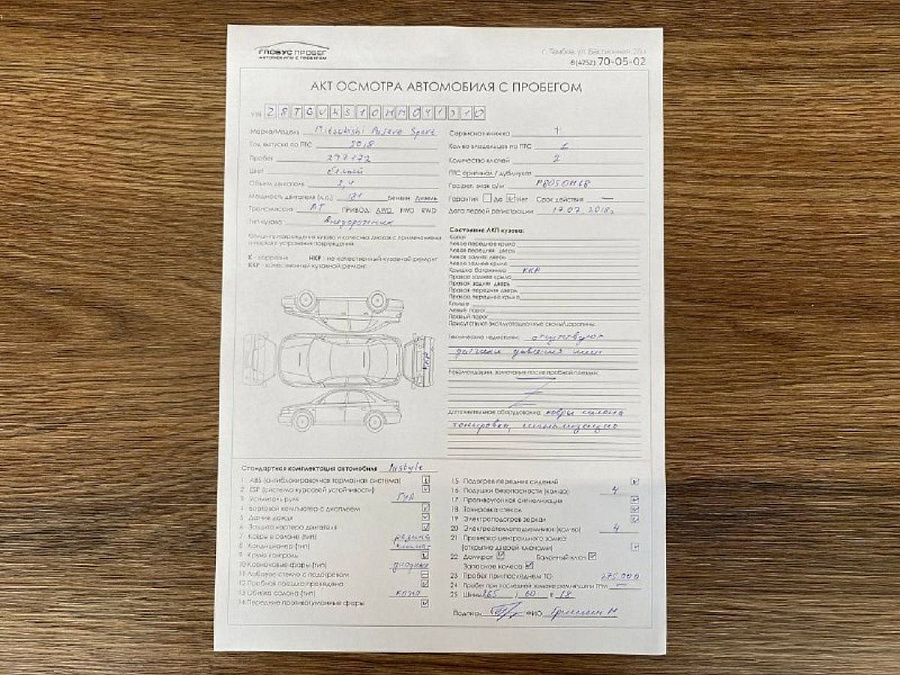 ГЛОБУС ПРОБЕГ
АВТОМОБИЛИ С ПРОБЕГОМ
8(4752) 70-05-02
АКТ ОСМОТРА АВТОМОБИЛЯ С ПРОБЕГОМ
VIN
Марка/Модель Mitsubishi Pajero Sport
Год выпуска по ПТС 2018
Пробег
Цвет белый
Объем двигателя 2,4
Мощность двигателя (л.с.) 181 Бензин Дизель
Трансмиссия АТ ПРИВОД: AWD FWD RWD
Тип кузова Внедорожник
К - коррозия НКР - не качественный кузовной ремонт
ККР - качественный кузовной ремонт
Сервисная книжка 1
Кол-во владельцев по ПТС
Количество ключей 2
ПТС оригинал / дубликат
Госрег. знак а/м
Гарантия Да Нет Срок действия —
Дата первой регистрации 17.07.2018г
Состояние ЛКП кузова:
Капот
Левое переднее крыло
Левая передняя дверь
Левая задняя дверь
Левое заднее крыло
Крышка багажника ККР
Правое заднее крыло
Правая задняя дверь
Правая передняя дверь
Правое переднее крыло
Крыша
Левый порог
Правый порог
Присутствуют эксплуатационные сколы/царапины.
Технические недостатки: отсутствуют
датчики давления шин
Рекомендации, замечания после пробной поездки:
Дополнительное оборудование: ковры салона
тонировка, сигнализация
ККР
Стандартная комплектация автомобиля Instyle
1 ABS (антиблокировочная тормозная система)
2 ESP (система курсовой устойчивости)
3 Усилитель руля ГУР
4 Бортовой компьютер с дисплеем
5 Датчик дождя
6 Защита картера двигателя
7 Ковры в салоне (тип) резина
8 Кондиционер (тип) климат
9 Круиз контроль
10 Ксеноновые фары (тип)
11 Лобовое стекло с подогревом
12 Пробная поездка проведена
13 Обивка салона (тип) кожа
14 Передние противотуманные фары
15 Подогрев передних сидений
16 Подушки безопасности (кол-во) 4
17 Противоугонная сигнализация
18 Тонировка стекол
19 Электроподогрев зеркал
20 Электростеклоподъемники (кол-во) 4
21 Проверка центрального замка
(открытие дверей ключами)
22 Домкрат Балонный ключ
Запасное колесо
23 Пробег при последнем ТО:
25 Шины 265 / 60 R 18
Подпись ФИО